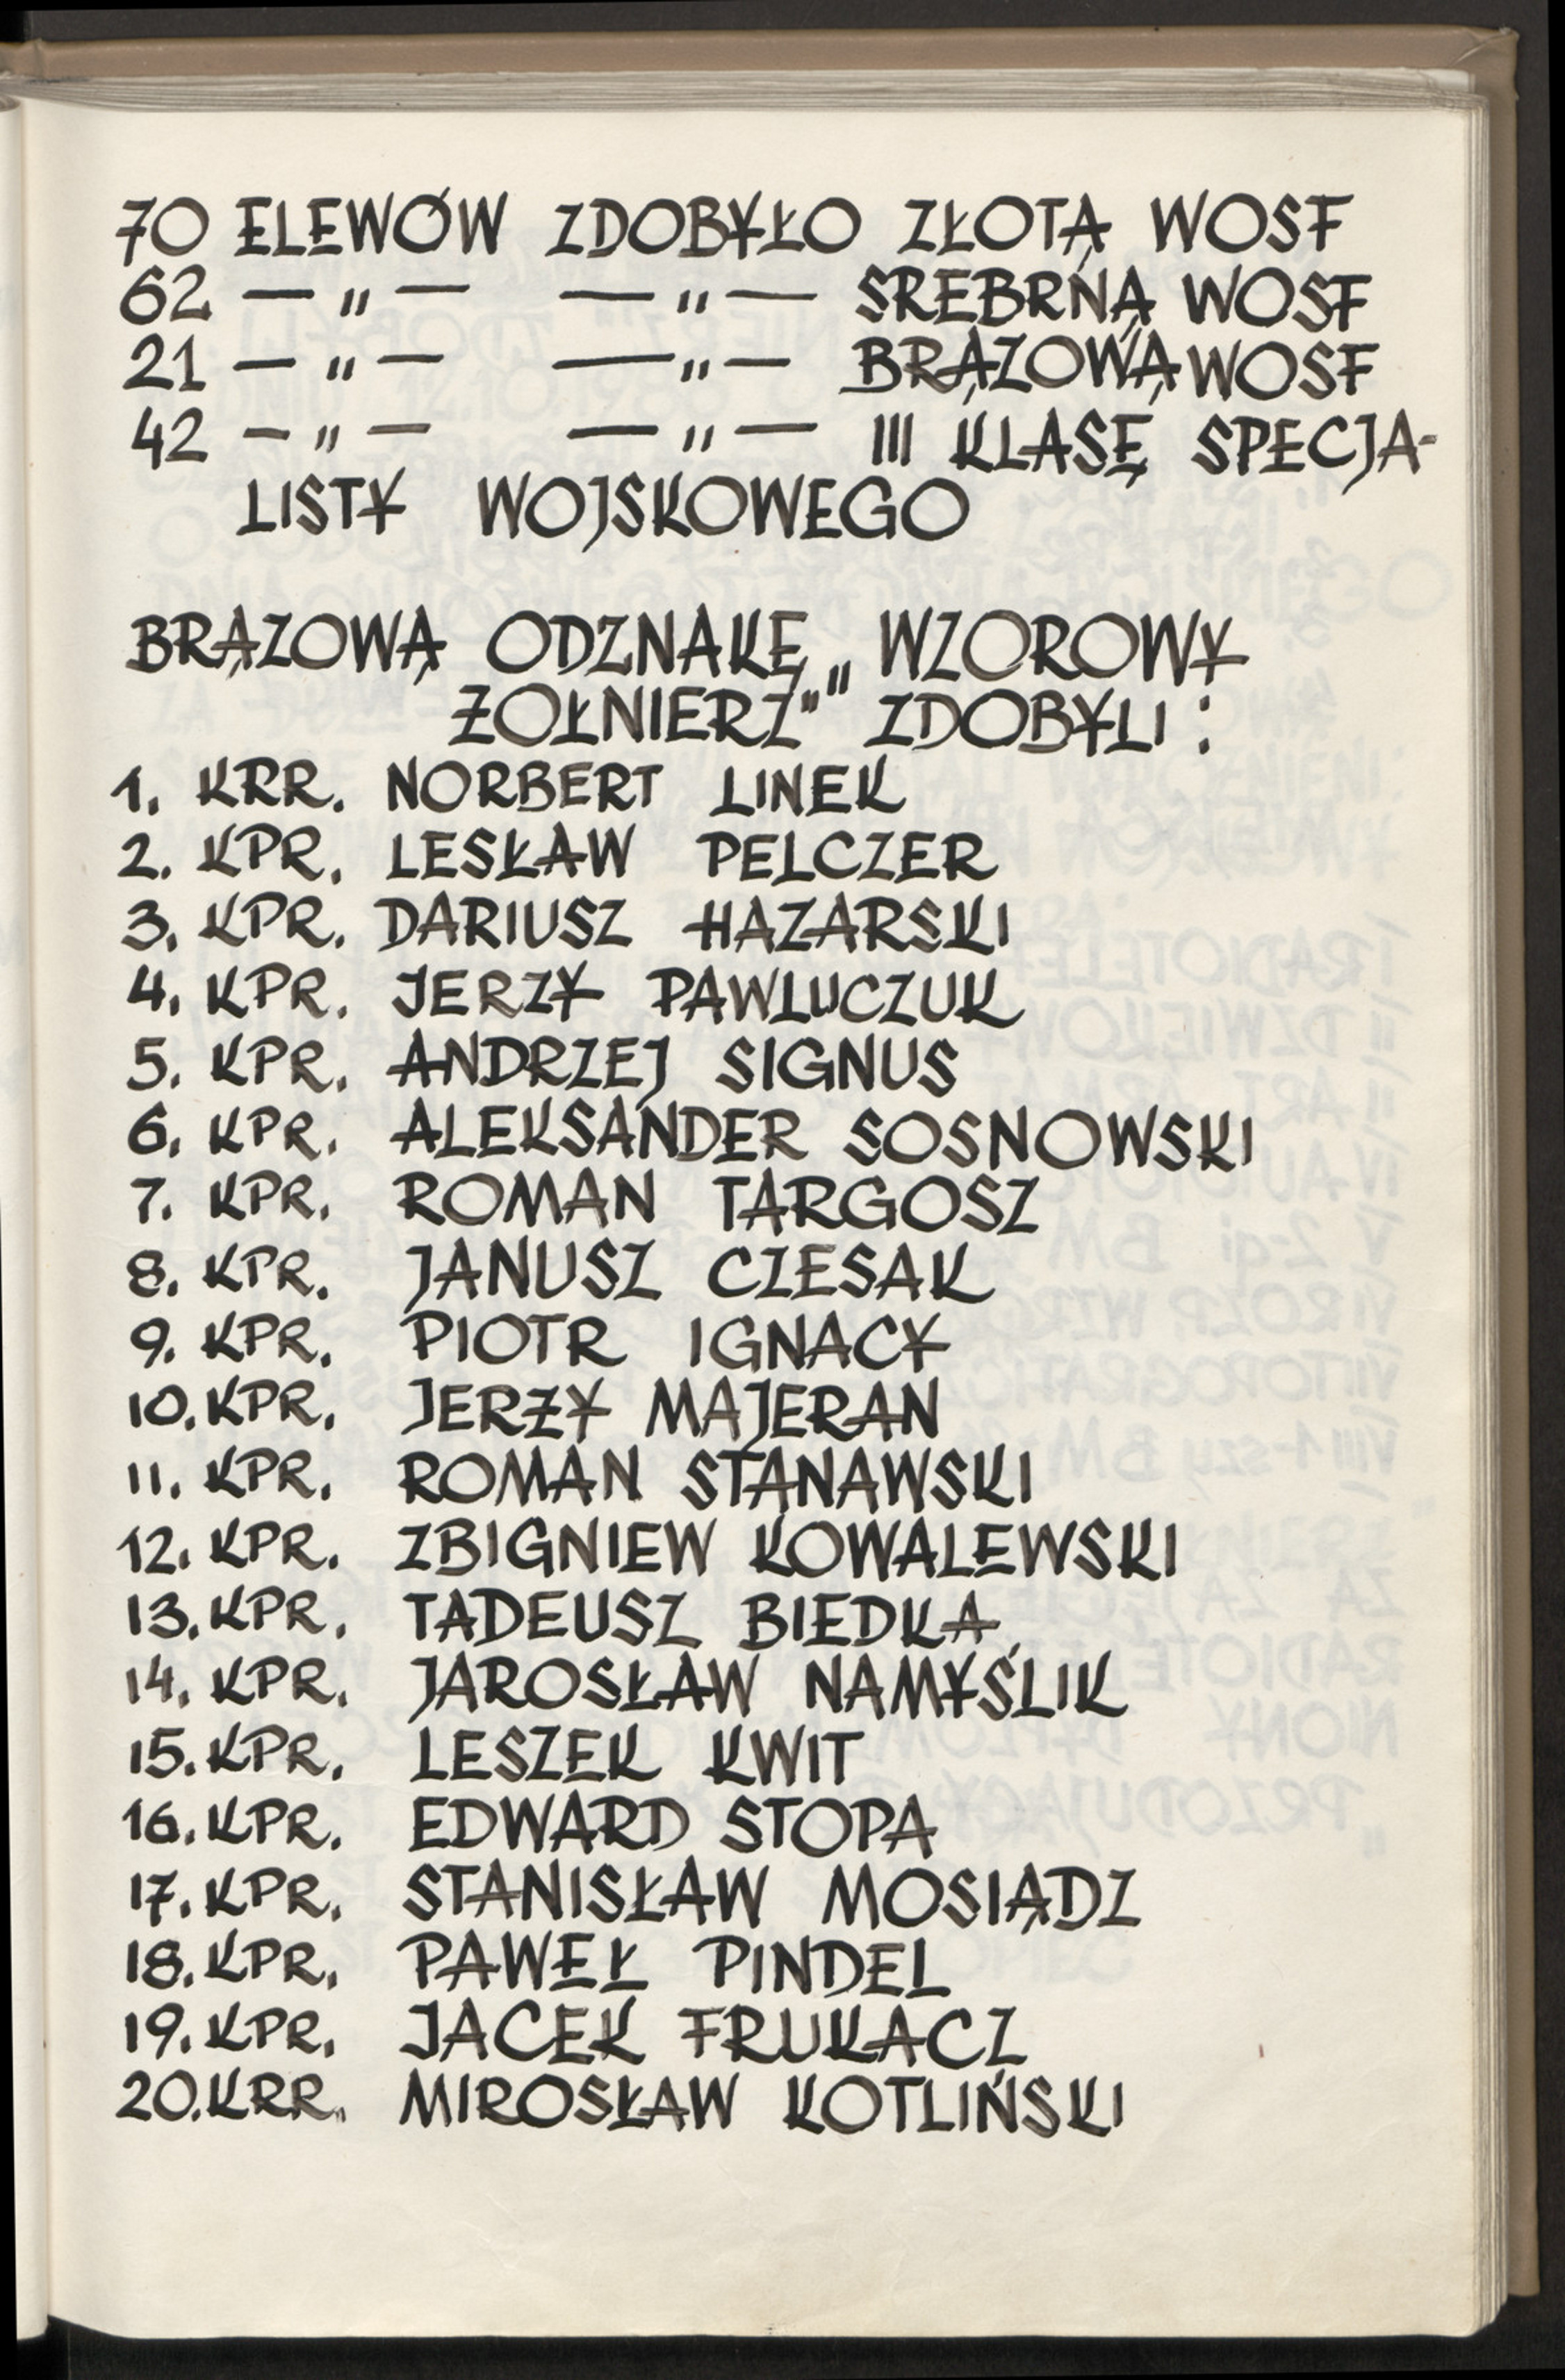 70 ELEWÓW ZDOBYŁO ZŁOTĄ WOSF
62 — " — — " — SREBRNĄ WOSF
21 — " — — " — BRĄZOWĄ WOSF
42 — " — — " — III KLASĘ SPECJA-
LISTY WOJSKOWEGO
BRĄZOWĄ ODZNAKĘ „WZOROWY
ŻOŁNIERZ" ZDOBYLI :
1. KRR. NORBERT LINEK
2. KPR. LESŁAW PELCZER
3. KPR. DARIUSZ HAZARSKI
4. KPR. JERZY PAWLUCZUK
5. KPR. ANDRZEJ SIGNUS
6. KPR. ALEKSANDER SOSNOWSKI
7. KPR. ROMAN TARGOSZ
8. KPR. JANUSZ CZESAK
9. KPR. PIOTR IGNACY
10. KPR. JERZY MAJERAN
11. KPR. ROMAN STANAWSKI
12. KPR. ZBIGNIEW KOWALEWSKI
13. KPR. TADEUSZ BIEDKA
14. KPR. JAROSŁAW NAMYŚLIK
15. KPR. LESZEK KWIT
16. KPR. EDWARD STOPA
17. KPR. STANISŁAW MOSIĄDZ
18. KPR. PAWEŁ PINDEL
19. KPR. JACEK FRUKACZ
20. KRR. MIROSŁAW KOTLIŃSKI